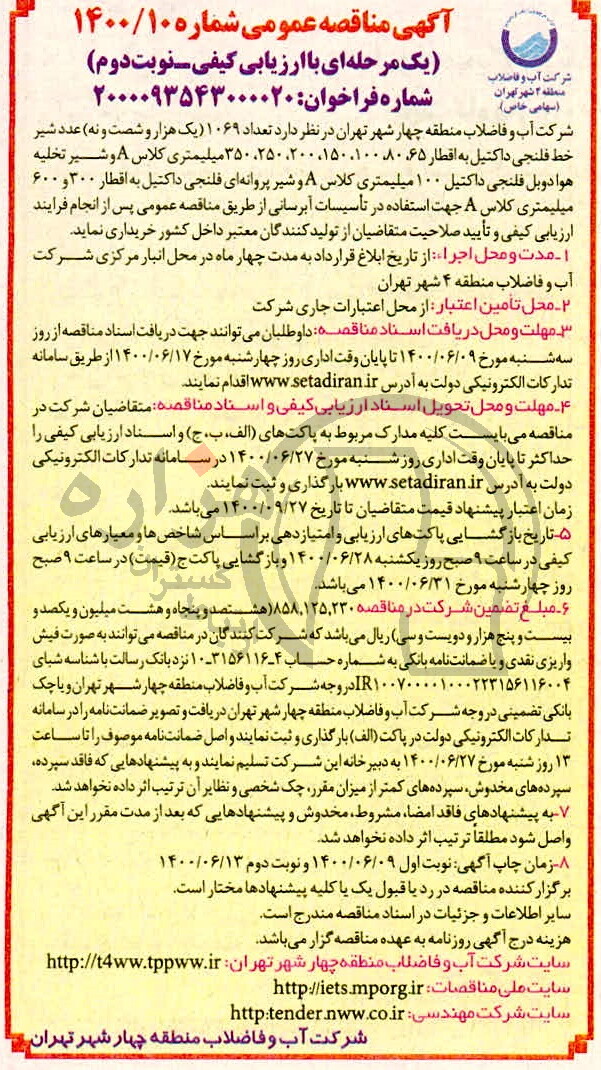 آگهی مناقصه عمومی شماره ۱۴۰۰/۱۰
(یک مرحله‌ای با ارزیابی کیفی ـ نوبت دوم)
شماره فراخوان: ۲۰۰۰۰۹۳۵۴۳۰۰۰۰۲۰
شرکت آب و فاضلاب
منطقه ۴ شهر تهران
(سهامی خاص)
شرکت آب و فاضلاب منطقه چهار شهر تهران در نظر دارد تعداد ۱۰۶۹ (یک هزار و شصت و نه) عدد شیر
خط فلنجی داکتیل به اقطار ۶۵، ۸۰، ۱۰۰، ۱۵۰، ۲۰۰، ۲۵۰، ۳۵۰ میلیمتری کلاس A و شیر تخلیه
هوا دوبل فلنجی داکتیل ۱۰۰ میلیمتری کلاس A و شیر پروانه‌ای فلنجی داکتیل به اقطار ۳۰۰ و ۶۰۰
میلیمتری کلاس A جهت استفاده در تأسیسات آبرسانی از طریق مناقصه عمومی پس از انجام فرایند
ارزیابی کیفی و تأیید صلاحیت متقاضیان از تولیدکنندگان معتبر داخل کشور خریداری نماید.
۱ـ مدت و محل اجراء: از تاریخ ابلاغ قرارداد به مدت چهار ماه در محل انبار مرکزی شرکت
آب و فاضلاب منطقه ۴ شهر تهران
۲ـ محل تأمین اعتبار: از محل اعتبارات جاری شرکت
۳ـ مهلت و محل دریافت اسناد مناقصه: داوطلبان می‌توانند جهت دریافت اسناد مناقصه از روز
سه‌شنبه مورخ ۱۴۰۰/۰۶/۰۹ تا پایان وقت اداری روز چهارشنبه مورخ ۱۴۰۰/۰۶/۱۷ از طریق سامانه
تدارکات الکترونیکی دولت به آدرس www.setadiran.ir اقدام نمایند.
۴ـ مهلت و محل تحویل اسناد ارزیابی کیفی و اسناد مناقصه: متقاضیان شرکت در
مناقصه می‌بایست کلیه مدارک مربوط به پاکت‌های (الف، ب، ج) و اسناد ارزیابی کیفی را
حداکثر تا پایان وقت اداری روز شنبه مورخ ۱۴۰۰/۰۶/۲۷ در سامانه تدارکات الکترونیکی
دولت به آدرس www.setadiran.ir بارگذاری و ثبت نمایند.
زمان اعتبار پیشنهاد قیمت متقاضیان تا تاریخ ۱۴۰۰/۰۹/۲۷ می‌باشد.
۵ـ تاریخ بازگشایی پاکت‌های ارزیابی و امتیازدهی بر اساس شاخص‌ها و معیارهای ارزیابی
کیفی در ساعت ۹ صبح روز یکشنبه ۱۴۰۰/۰۶/۲۸ و بازگشایی پاکت ج (قیمت) در ساعت ۹ صبح
روز چهارشنبه مورخ ۱۴۰۰/۰۶/۳۱ می‌باشد.
۶ـ مبلغ تضمین شرکت در مناقصه ۸۵۸,۱۲۵,۲۳۰ (هشتصد و پنجاه و هشت میلیون و یکصد و
بیست و پنج هزار و دویست و سی) ریال می‌باشد که شرکت کنندگان در مناقصه می‌توانند به صورت فیش
واریزی نقدی و یا ضمانت‌نامه بانکی به شماره حساب ۴ـ۳۱۵۶۱۱۶ـ۱۰ نزد بانک رسالت با شناسه شبای
IR۱۰۰۷۰۰۰۰۱۰۰۰۲۲۳۱۵۶۱۱۶۰۰۴ در وجه شرکت آب و فاضلاب منطقه چهار شهر تهران و یا چک
بانکی تضمینی در وجه شرکت آب و فاضلاب منطقه چهار شهر تهران دریافت و تصویر ضمانت‌نامه را در سامانه
تدارکات الکترونیکی دولت در پاکت (الف) بارگذاری و ثبت نمایند و اصل ضمانت‌نامه موصوف را تا ساعت
۱۳ روز شنبه مورخ ۱۴۰۰/۰۶/۲۷ به دبیرخانه این شرکت تسلیم نمایند و به پیشنهادهایی که فاقد سپرده،
سپرده‌های مخدوش، سپرده‌های کمتر از میزان مقرر، چک شخصی و نظایر آن ترتیب اثر داده نخواهد شد.
۷ـ به پیشنهادهای فاقد امضا، مشروط، مخدوش و پیشنهادهایی که بعد از مدت مقرر این آگهی
واصل شود مطلقاً ترتیب اثر داده نخواهد شد.
۸ـ زمان چاپ آگهی: نوبت اول ۱۴۰۰/۰۶/۰۹ و نوبت دوم ۱۴۰۰/۰۶/۱۳
برگزارکننده مناقصه در رد یا قبول یک یا کلیه پیشنهادها مختار است.
سایر اطلاعات و جزئیات در اسناد مناقصه مندرج است.
هزینه درج آگهی روزنامه به عهده مناقصه‌گزار می‌باشد.
سایت شرکت آب و فاضلاب منطقه چهار شهر تهران: http://t4ww.tppww.ir
سایت ملی مناقصات: http://iets.mporg.ir
سایت شرکت مهندسی: http:tender.nww.co.ir
شرکت آب و فاضلاب منطقه چهار شهر تهران